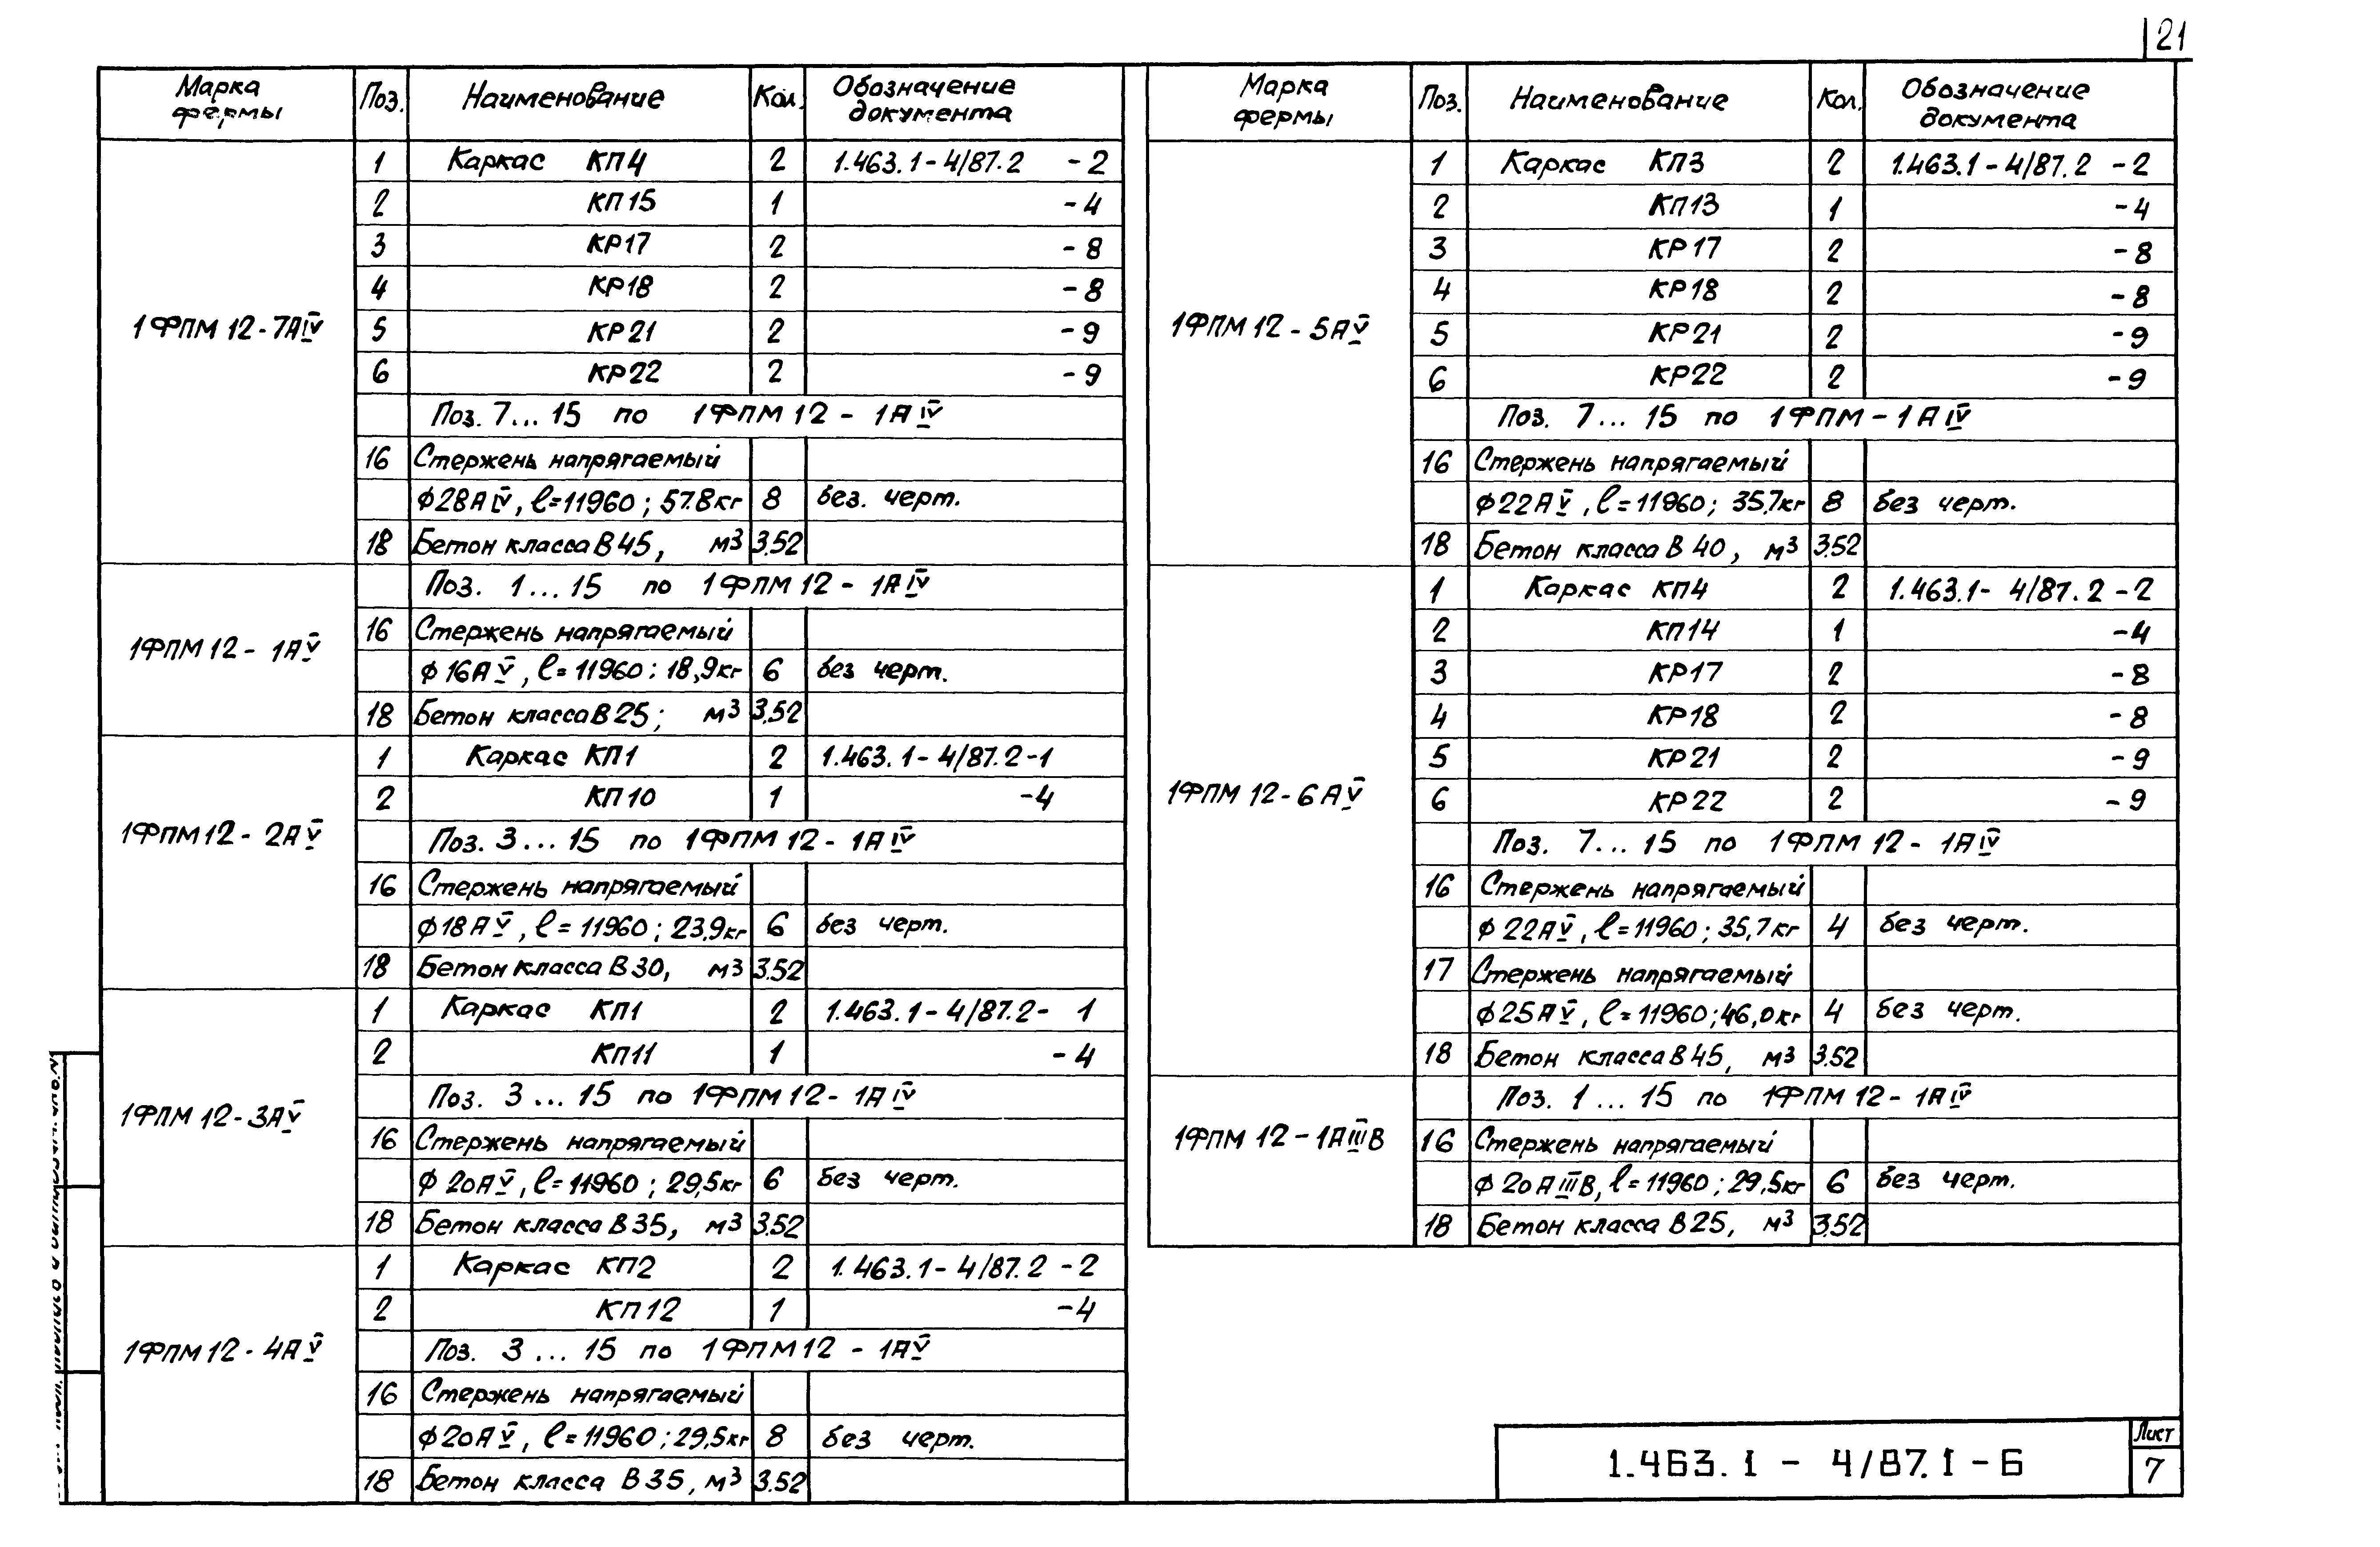 21
Марка фермы Поз. Наименование Кол. Обозначение документа
1ФПМ 12-7АIV
1 Каркас КП4 2 1.463.1-4/87.2 -2
2 КП15 1 -4
3 КР17 2 -8
4 КР18 2 -8
5 КР21 2 -9
6 КР22 2 -9
Поз. 7...15 по 1ФПМ 12-1АIV
16 Стержень напрягаемый
ф28АIV, ℓ=11960; 57.8кг 8 без. черт.
18 Бетон класса В45, м3 3.52
1ФПМ 12-1АV
Поз. 1...15 по 1ФПМ 12-1АIV
16 Стержень напрягаемый
ф16АV, ℓ=11960; 18,9кг 6 без черт.
18 Бетон класса В25; м3 3.52
1ФПМ 12-2АV
1 Каркас КП1 2 1.463.1-4/87.2-1
2 КП10 1 -4
Поз. 3...15 по 1ФПМ 12-1АIV
16 Стержень напрягаемый
ф18АV, ℓ=11960; 23,9кг 6 без черт.
18 Бетон класса В30, м3 3.52
1ФПМ 12-3АV
1 Каркас КП1 2 1.463.1-4/87.2-1
2 КП11 1 -4
Поз. 3...15 по 1ФПМ 12-1АIV
16 Стержень напрягаемый
ф20АV, ℓ=11960; 29,5кг 6 без черт.
18 Бетон класса В35, м3 3.52
1ФПМ 12-4АV
1 Каркас КП2 2 1.463.1-4/87.2 -2
2 КП12 1 -4
Поз. 3...15 по 1ФПМ12-1АV
16 Стержень напрягаемый
ф20АV, ℓ=11960; 29,5кг 8 без черт.
18 Бетон класса В35, м3 3.52
Марка фермы Поз. Наименование Кол. Обозначение документа
1ФПМ 12-5АV
1 Каркас КП3 2 1.463.1-4/87.2 -2
2 КП13 1 -4
3 КР17 2 -8
4 КР18 2 -8
5 КР21 2 -9
6 КР22 2 -9
Поз. 7...15 по 1ФПМ-1АIV
16 Стержень напрягаемый
ф22АV, ℓ=11960; 35,7кг 8 без черт.
18 Бетон класса В40, м3 3.52
1ФПМ 12-6АV
1 Каркас КП4 2 1.463.1-4/87.2-2
2 КП14 1 -4
3 КР17 2 -8
4 КР18 2 -8
5 КР21 2 -9
6 КР22 2 -9
Поз. 7...15 по 1ФПМ 12-1АIV
16 Стержень напрягаемый
ф22АV, ℓ=11960; 35,7кг 4 без черт.
17 Стержень напрягаемый
ф25АV, ℓ=11960; 46,0кг 4 без черт.
18 Бетон класса В45, м3 3.52
1ФПМ 12-1АIIIВ
Поз. 1...15 по 1ФПМ 12-1АIV
16 Стержень напрягаемый
ф20АIIIВ, ℓ=11960; 29.5кг 6 без черт.
18 Бетон класса В25, м3 3.52
1.463.1-4/87.1-6
Лист
7